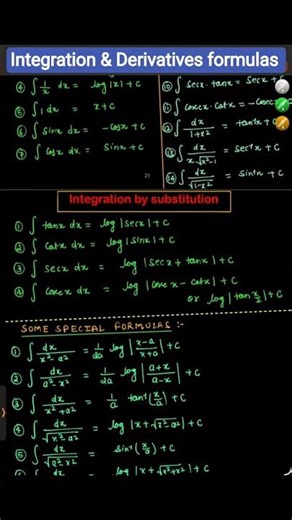 Integration & Derivatives formulas
④ ∫ 1/x dx = log|x| + C
⑤ ∫ 1 dx = x + C
⑥ ∫ sinx dx = -cosx + C
⑦ ∫ cosx dx = sinx + C
⑩ ∫ secx. tanx = secx +
⑪ ∫ cosecx. cotx = -cosec
⑫ ∫ dx/1+x² = tan⁻¹x +
⑬ ∫ dx/x.√x²-1 = sec⁻¹x + C
⑭ ∫ dx/√1-x² = sin⁻¹x + C
21
Integration by substitution
① ∫ tanx dx = log|secx| + C
② ∫ cotx dx = log|sinx| + C
③ ∫ secx dx = log|secx + tanx| + C
④ ∫ cosecx dx = log|cosecx - cotx| + C
or log|tan x/2| + C
SOME SPECIAL FORMULAS :-
① ∫ dx/x²-a² = 1/2a log|x-a/x+a| + C
② ∫ dx/a²-x² = 1/2a log|a+x/a-x| + C
③ ∫ dx/x²+a² = 1/a tan⁻¹(x/a) + C
④ ∫ dx/√x²-a² = log|x + √x²-a²| + C
⑤ ∫ dx/√a²-x² = sin⁻¹(x/a) + C
∫ dx = log|x + √x²+a²| + C